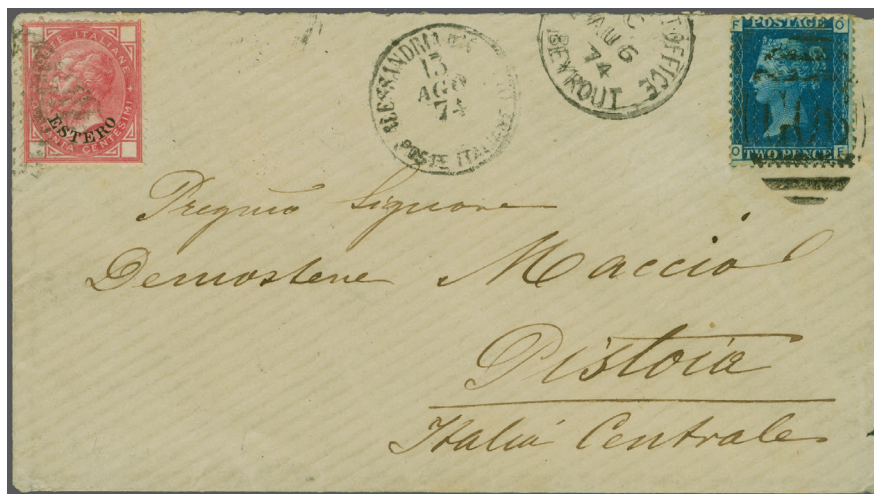 POSTE ITALIANE
ESTERO
CENTESIMI
ALESSANDRIA
13
AGO
74
POSTE ITALIANE
OFFICE
AU 6
74
BEYROUT
F POSTAGE O
O TWO PENCE F
Pregmo Signore
Demostene Macciò
Pistoia
Italia Centrale